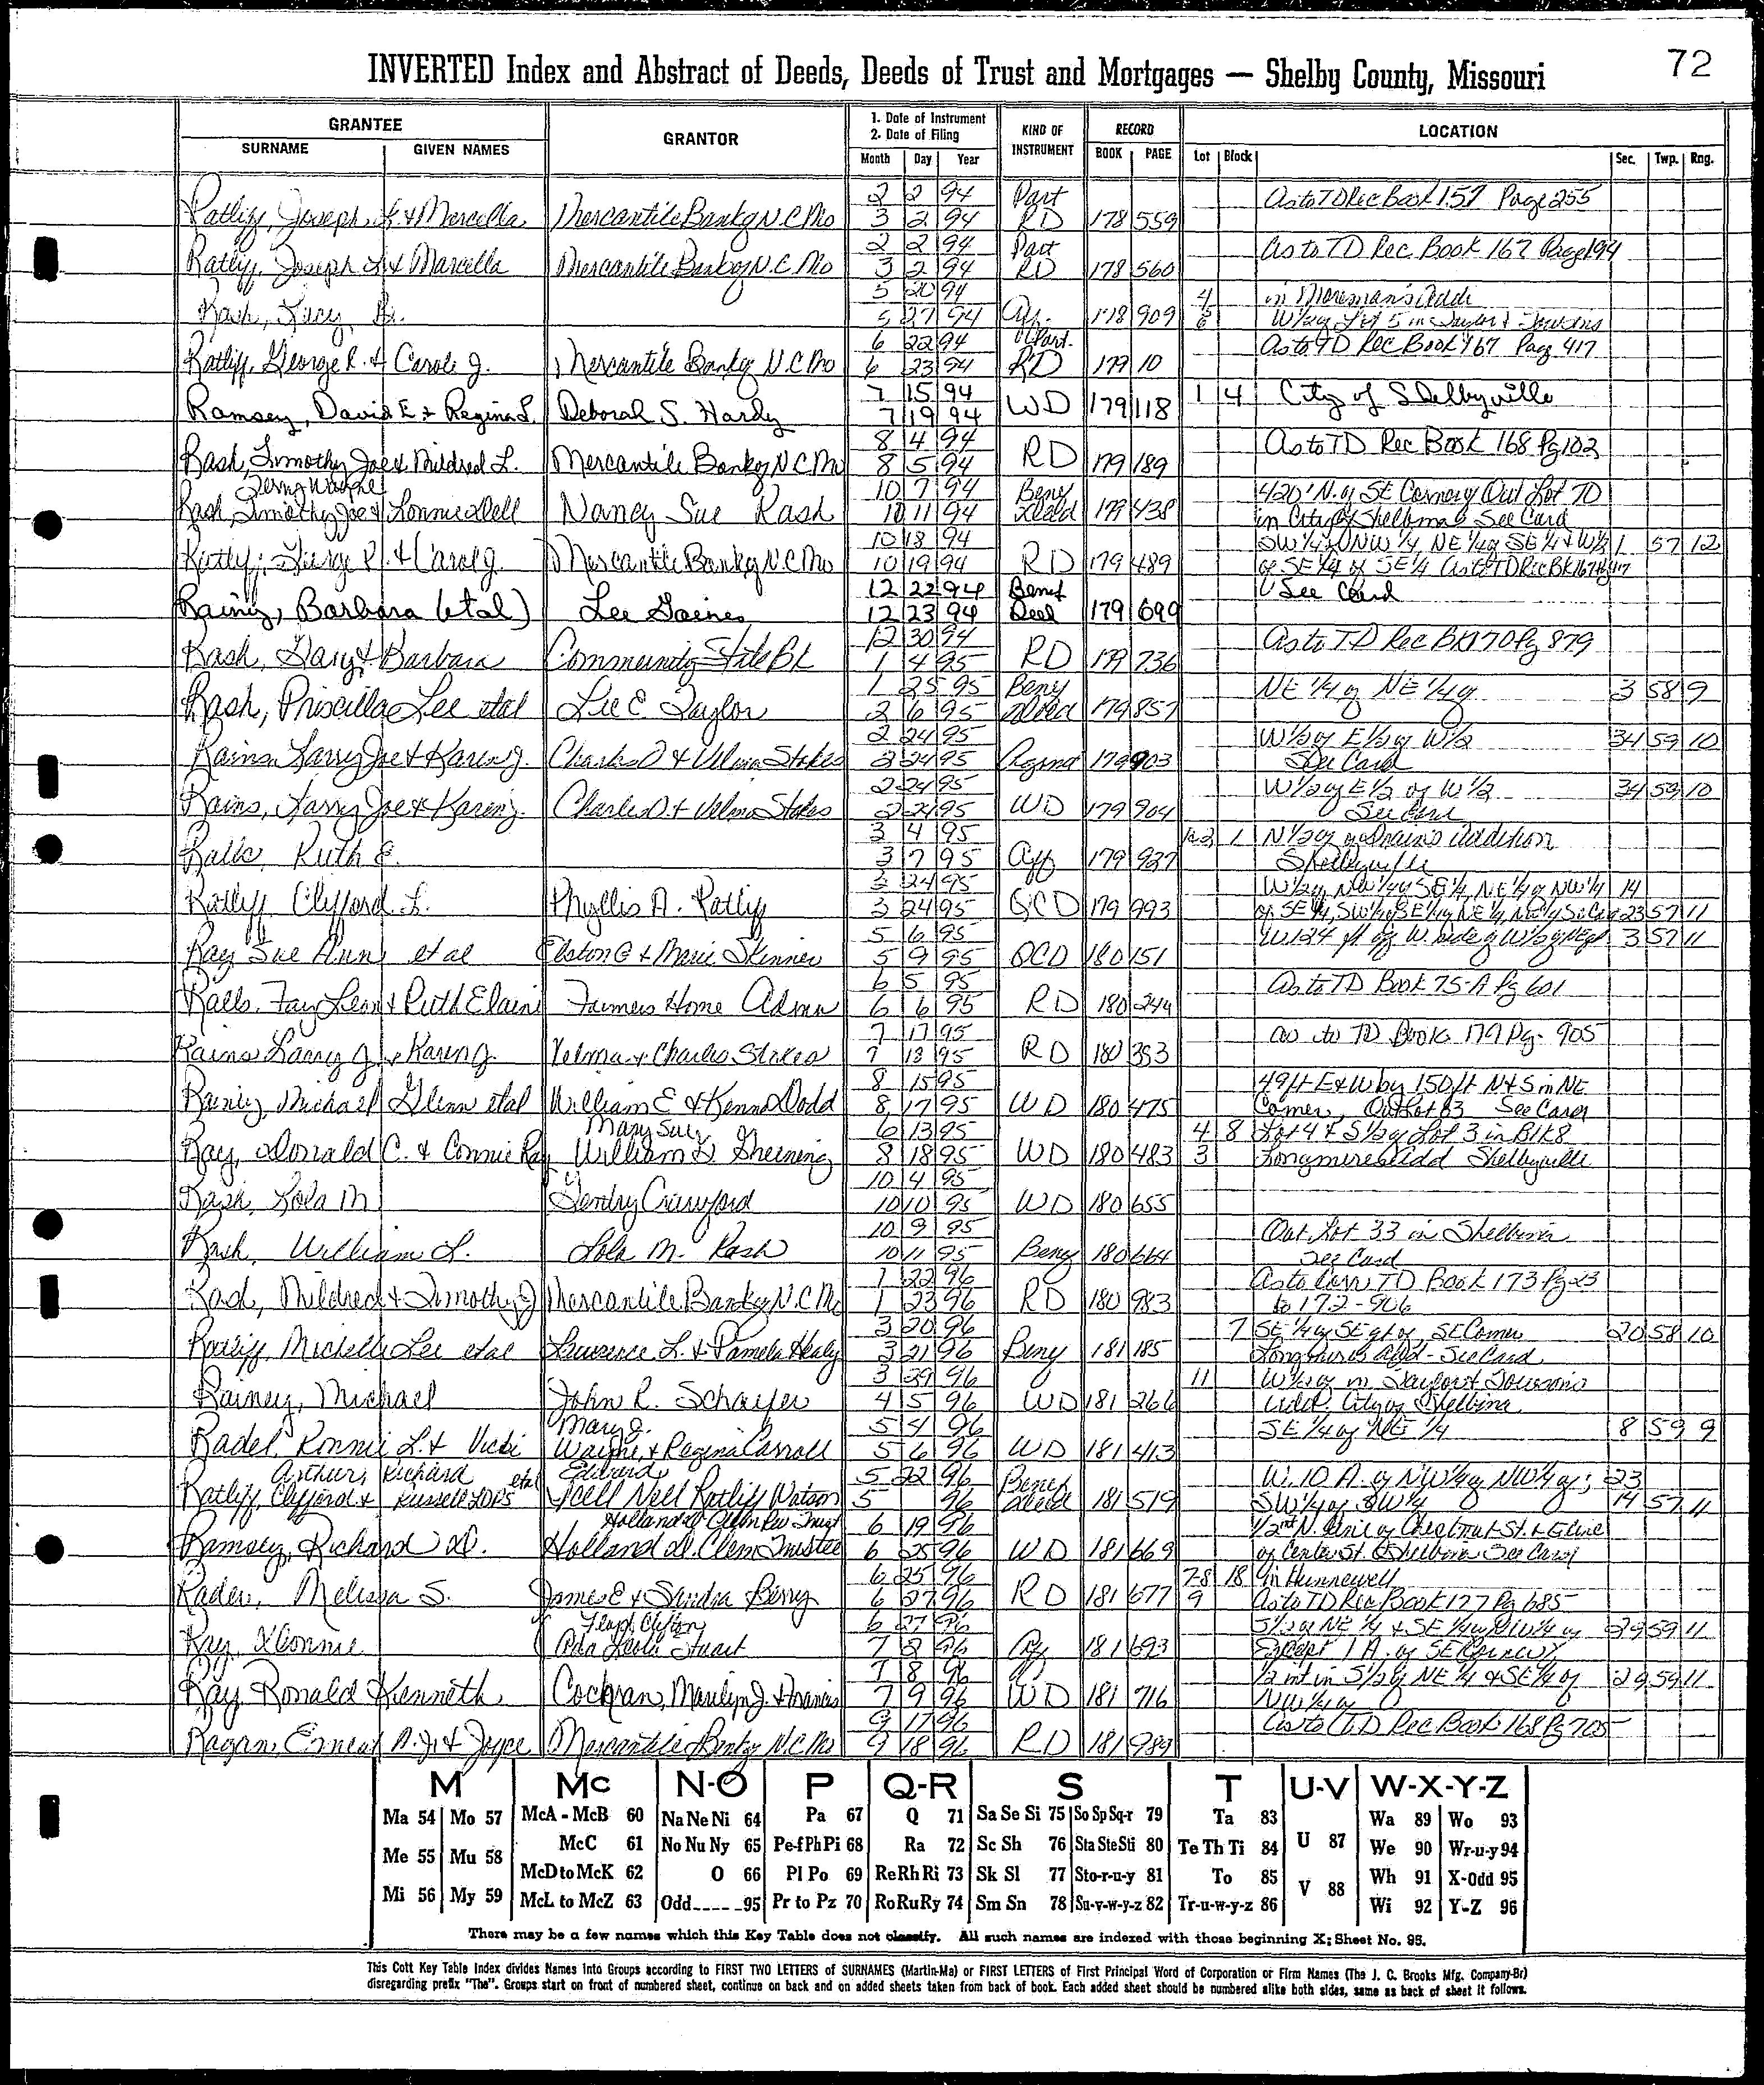 72
INVERTED Index and Abstract of Deeds, Deeds of Trust and Mortgages — Shelby County, Missouri
GRANTEE
SURNAME GIVEN NAMES
GRANTOR
1. Date of Instrument
2. Date of Filing
Month Day Year
KIND OF
INSTRUMENT
RECORD
BOOK PAGE
LOCATION
Lot Block Sec. Twp. Rng.
2 2 94 Part As to TD Rec Book 157 Page 255
Ratliff, Joseph L. & Marcella Mercantile Bank of N.C. Mo 3 2 94 RD 178 559
2 2 94 Part As to TD Rec. Book 167 Page 194
Ratliff, Joseph L & Marcella Mercantile Bank of N.C. Mo 3 2 94 RD 178 560
5 20 94 4 in Moreman's Addi
Rash, Lacy 5 27 94 178 909 W 1/2 of Lot 5 in Taylor &
6 22 94 Part. As to TD Rec Book 167 Page 417
Ratliff, George R. & Carole J. Mercantile Bank of N.C. Mo 6 23 94 RD 179 10
7 15 94
Ramsey, David E & Regina L. Deborah S. Hardy 7 19 94 WD 179 118 1 4 City of Shelbyville
8 4 94 As to TD Rec Book 168 Pg 102
Rash, Timothy Joe & Mildred L. Mercantile Bank of N.C. Mo 8 5 94 RD 179 189
Terry Wayne 10 7 94 Benf 420' N. of SE Corner of Out Lot 70
Rash, Timothy Joe & Lonnie Dell Nancy Sue Rash 10 11 94 Deed 179 438 in City of Shelbina See Card
10 18 94 SW 1/4 of NW 1/4, NE 1/4 of SE 1/4 & W 1/2 1 57 12
Ratliff, George R. & Carol J. Mercantile Bank of N.C. Mo 10 19 94 RD 179 489 of SE 1/4 of SE 1/4 As to TD Rec Bk 167 Pg 417
12 22 94 Benef See Card
Rainey, Barbara (etal) Lee Gaines 12 23 94 Deed 179 699
12 30 94 As to TD Rec Bk 170 Pg 879
Rash, Gary & Barbara Community State Bk 1 4 95 RD 179 736
1 25 95 Benf NE 1/4 of NE 1/4 of 3 58 9
Rash, Priscilla Lee etal Lee E. Taylor 2 6 95 Deed 179 857
2 24 95 W 1/2 of E 1/2 of W 1/2 34 59 10
Rains, Larry Joe & Karen J. Charles D & Velma Stokes 2 24 95 179 903 See Card
2 24 95 W 1/2 of E 1/2 of W 1/2 34 59 10
Rains, Larry Joe & Karen J. Charles D. & Velma Stokes 2 24 95 WD 179 904 See Card
3 4 95 1 N 1/2 of Addition
Ralls, Ruth E. 3 7 95 Aff 179 937 Shelbyville
3 24 95 W 1/2 of NW 1/4 of SE 1/4, NE 1/4 of NW 1/4 14
Ratliff, Clifford L. Phyllis A. Ratliff 3 24 95 QCD 179 993 23 57 11
5 6 95 W 124 ft of W. side of W 1/2 of 3 57 11
Ray, Sue Ann et al Elston G & Marie Skinner 5 9 95 QCD 180 151
6 5 95 As to TD Book 75-A Pg 601
Ralls, Fay Leon & Ruth Elaine Farmers Home Admn 6 6 95 RD 180 244
7 17 95 as to TD Book 179 Pg. 905
Rains Larry J. & Karen J. Velma & Charles Stokes 7 18 95 RD 180 353
8 15 95 49 ft E&W by 150 ft N&S in NE
Rainey, Michael Glenn etal William E & Kenna Dodd 8 17 95 WD 180 475 Corner, Outlot 83 See Card
Mary Sue 6 13 95 4 8 Lot 4 & S 1/2 of Lot 3 in Blk 8
Ray, Donald C. & Connie Kay William D 8 18 95 WD 180 483 3 Longmires Add Shelbyville
10 4 95
Rash, Lola M Gentry Crawford 10 10 95 WD 180 655
10 9 95 Out Lot 33 in Shelbina
Rash, William L. Lola M. Rash 10 11 95 Benf 180 664 See Card
1 22 96 As to TD Book 173 Pg 23
Rash, Mildred & Timothy J Mercantile Bank of N.C. Mo 1 23 96 RD 180 983 to 172-906
3 20 96 7 SE 1/4 of SE SE Corner 20 58 10
Ratliff, Michelle Lee etal Lawrence L. & Pamela Healy 3 21 96 Benf 181 185 Add - See Card
3 29 96 11 W 1/2 of in Taylor &
Rainey, Michael John R. Schaefer 4 5 96 WD 181 266 Add. City of Shelbina
Mary J. 5 4 96 SE 1/4 of NE 1/4 8 59 9
Radel, Ronnie L. & Vicki Wayne & Regina Carroll 5 6 96 WD 181 413
Arthur, Richard etal Edward 5 22 96 Benef W. 10 A. of NW 1/4 of NW 1/4 of; 23
Ratliff, Clifford & Russell Nell Ratliff Watson 5 96 Deed 181 519 SW 1/4 of SW 1/4 14 57 11
Holland D Clem Rev Trust 6 19 96 N. line of Chestnut St. & E line
Ramsey, Richard D. Holland D. Clem Trustee 6 25 96 WD 181 669 of Center St. Shelbina See Card
6 25 96 7-8 18 in Hunnewell
Rader, Melissa S. James E & Sandra Berry 6 27 96 RD 181 677 9 As to TD Rec Book 127 Pg 685
Clifton 6 27 96 S 1/2 of NE 1/4 & SE 1/4 of NW 1/4 of 29 59 11
Ray, Connie Ada Leslie Stuart 7 8 96 181 693 Except 1 A. of SE Corner
7 8 96 1/2 int in S 1/2 of NE 1/4 & SE 1/4 of 29 59 11
Ray Ronald Kenneth Cochran, Marilyn J. & Francis 7 9 96 WD 181 716 NW 1/4 of
9 17 96 As to TD Rec Book 168 Pg 705
Ragan, Ernest A. Jr & Joyce Mercantile Bank of N.C. Mo 9 18 96 RD 181 989
M Mc N-O P Q-R S T U-V W-X-Y-Z
Ma 54 Mo 57 McA - McB 60 Na Ne Ni 64 Pa 67 Q 71 Sa Se Si 75 So Sp Sq-r 79 Ta 83 Wa 89 Wo 93
McC 61 No Nu Ny 65 Pe-f Ph Pi 68 Ra 72 Sc Sh 76 Sta Ste Sti 80 Te Th Ti 84 U 87 We 90 Wr-u-y 94
Me 55 Mu 58 McD to McK 62 O 66 Pl Po 69 Re Rh Ri 73 Sk Sl 77 Sto-r-u-y 81 To 85 V 88 Wh 91 X-Odd 95
Mi 56 My 59 McL to McZ 63 Odd_ _ _ _ _95 Pr to Pz 70 Ro Ru Ry 74 Sm Sn 78 Su-v-w-y-z 82 Tr-u-w-y-z 86 Wi 92 Y-Z 96
There may be a few names which this Key Table does not classify. All such names are indexed with those beginning X; Sheet No. 95.
This Cott Key Table Index divides Names into Groups according to FIRST TWO LETTERS of SURNAMES (Martin-Ma) or FIRST LETTERS of First Principal Word of Corporation or Firm Names (The J. C. Brooks Mfg. Company-Br)
disregarding prefix "The". Groups start on front of numbered sheet, continue on back and on added sheets taken from back of book. Each added sheet should be numbered alike both sides, same as back of sheet it follows.